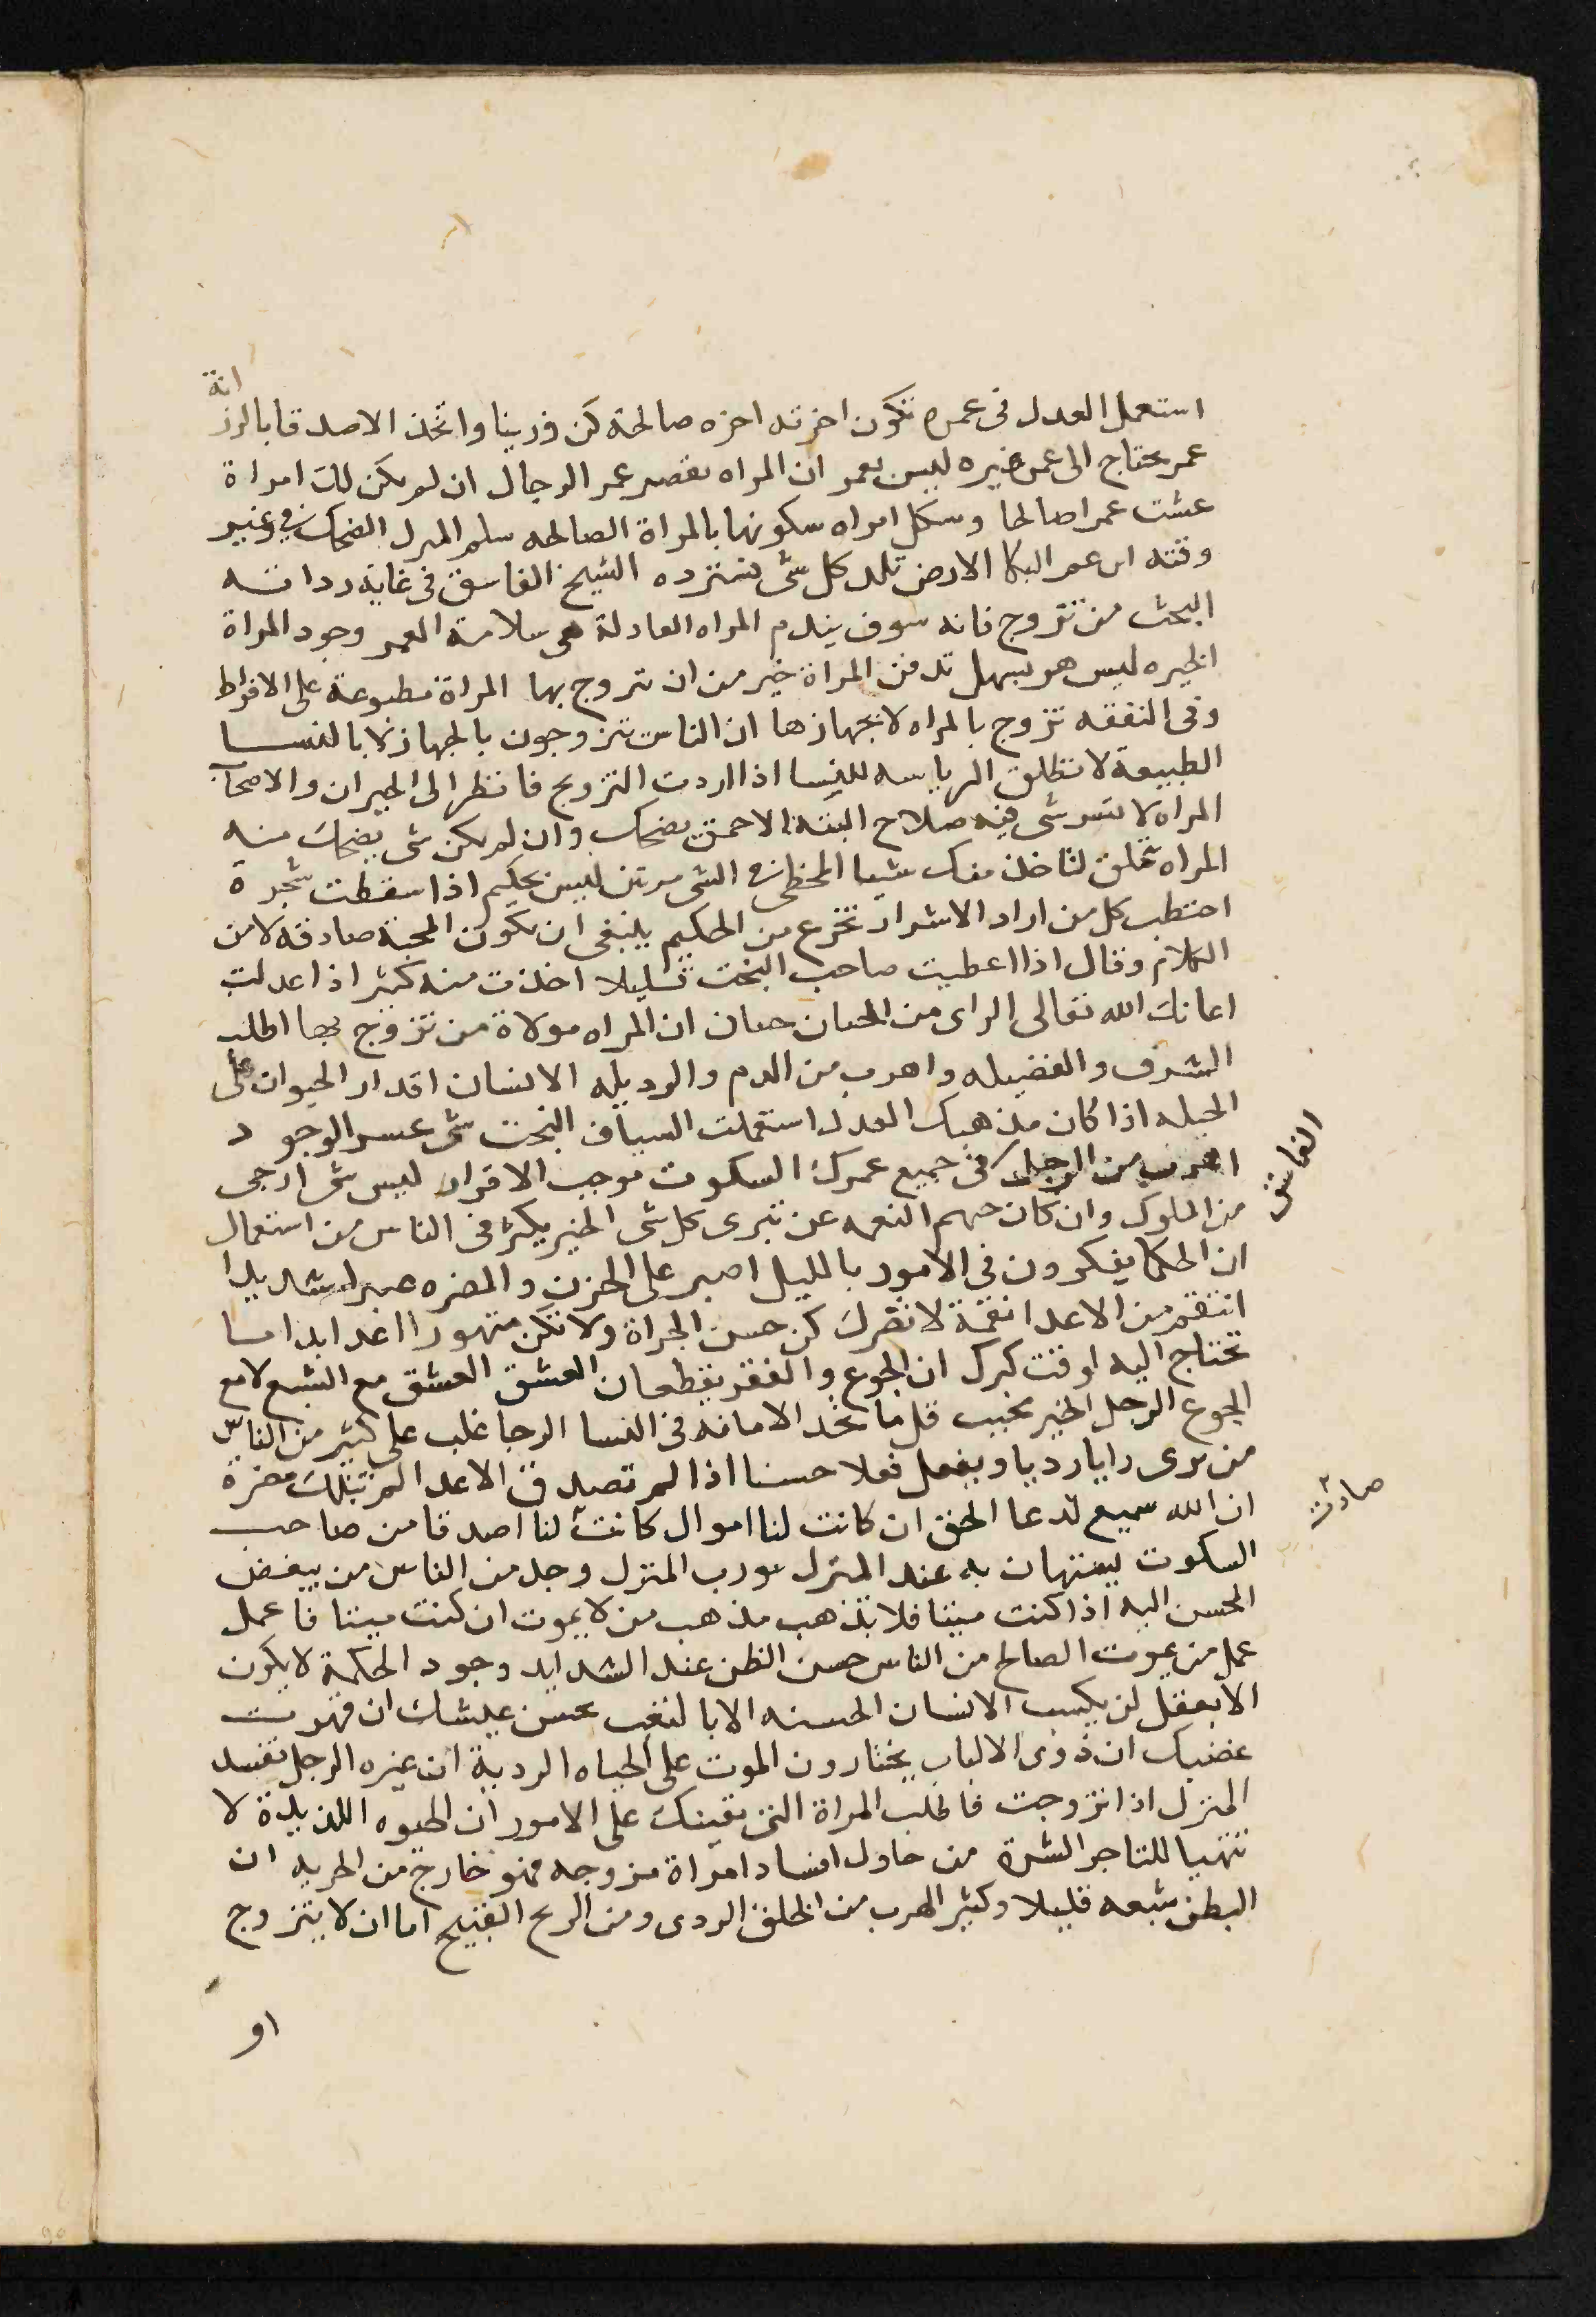 استعمل العدل فى عمره تكون اخرته اخره صالحة كن رزينا واتخذ الاصدقا بالرز
انة
عمر يحتاج الى عمر غيره ليس بعمر ان المراه تقصر عمر الرجال ان لم يكن لك امراة
عشت عمرا صالحا وشكل امراه سكوتها بالمراة الصالحه سلم المنزل الضحك فى غير
وقته ابن عم البكا الارض تلد كل شى وتسترده الشيخ الفاسق فى غاية رداته
البخت من تزوج فانه سوف يندم المراه العادلة هى سلامة العمر وجود المراة
الخيره ليس هو بسهل تدفن المراة خير من ان تتزوج بها المراة مطبوعة على الافراط
وفى النفقه تزوج بالمراه لا بجهازها ان الناس تتزوجون بالجهاز لا بالنسا
الطبيعة لا تطلق الرياسه للنسا اذا اردت التزويج فانظر الى الجيران والاصحاب
المراه لا تسر شى فيه صلاح البتة الاحمق يضحك وان لم يكن شى يضحك منه
المراه تملق لتاخذ منك شيا المخطى فى الشى مرتين ليس بحكيم اذا سقطت شجرة
احتطب كل من اراد الاشرار تخرع من الحكيم ينبغى ان تكون المحبة صادقه لا من
الكلام وقال اذا اعطيت صاحب البخت قليلا اخذت منه كثيرا اذا عدلت
اعانك الله تعالى الراى من الجبان جبان ان المراه مولاة من تزوج بها اطلب
الشرف والفضيله واهرب من الذم والرديله الانسان اقدار الحيوان على
الحيله اذا كان مذهبك العدل استعملت السياف البخت شى عسر الوجود
اهرب من الرجل فى جميع عمرك السكوت موجب الاقرار ليس شى ارجى
الغاش
من الملوك وان كان حبهم النعمه عن تبرى كل شى الخير يكثر فى الناس من استعمال
ان الحكما يفكرون فى الامور بالليل اصبر على الحزن والمضره صبرا شديدا
انتقم من الاعدا نقمة لا تضرك كن حسن الجراة ولا تكن متهورا اعد ابدا ما
تحتاج اليه لوقت كبرك ان الجوع والفقر يقطعان العشق العشق مع الشبع لا مع
الجوع الرجل الخير نجيب قل ما تجد الامانه فى النسا الرجا غلب على كثير من الناس
من يرى رايا رديا ويفعل فعلا حسنا اذا لم تصدق الاعدا لم تنلك مضرة
ان الله سميع لدعا الحق ان كانت لنا اموال كانت لنا اصدقا من صاحب
صادق
السكوت يستهان به عند المنزل سو رب المنزل وجل من الناس من يبغض
المحسن اليه اذا كنت ميتا فلا تذهب مذهب من لا يموت ان كنت ميتا فاعمل
عمل من يموت الصالح من الناس حسن الظن عند الشدايد وجود الحكمة لا يكون
الا بعقل لن يكسب الانسان الحسنه الا بالتعب يحسن عيشك ان قهرت
غضبك ان ذوى الالباب يختارون الموت على الحياه الردية ان غيره الرجل تفسد
المنزل اذا تزوجت فاطلب المراة التى تعينك على الامور ان الحيوه اللذيذة لا
تتهيا للتاجر الشره من حاول افساد امراة مزوجه فهو خارج من الحريه ان
البطن شبعه قليلا وكثير الهرب من الخلق الردى ومن الربح القبيح اما ان لا يتزوج
او